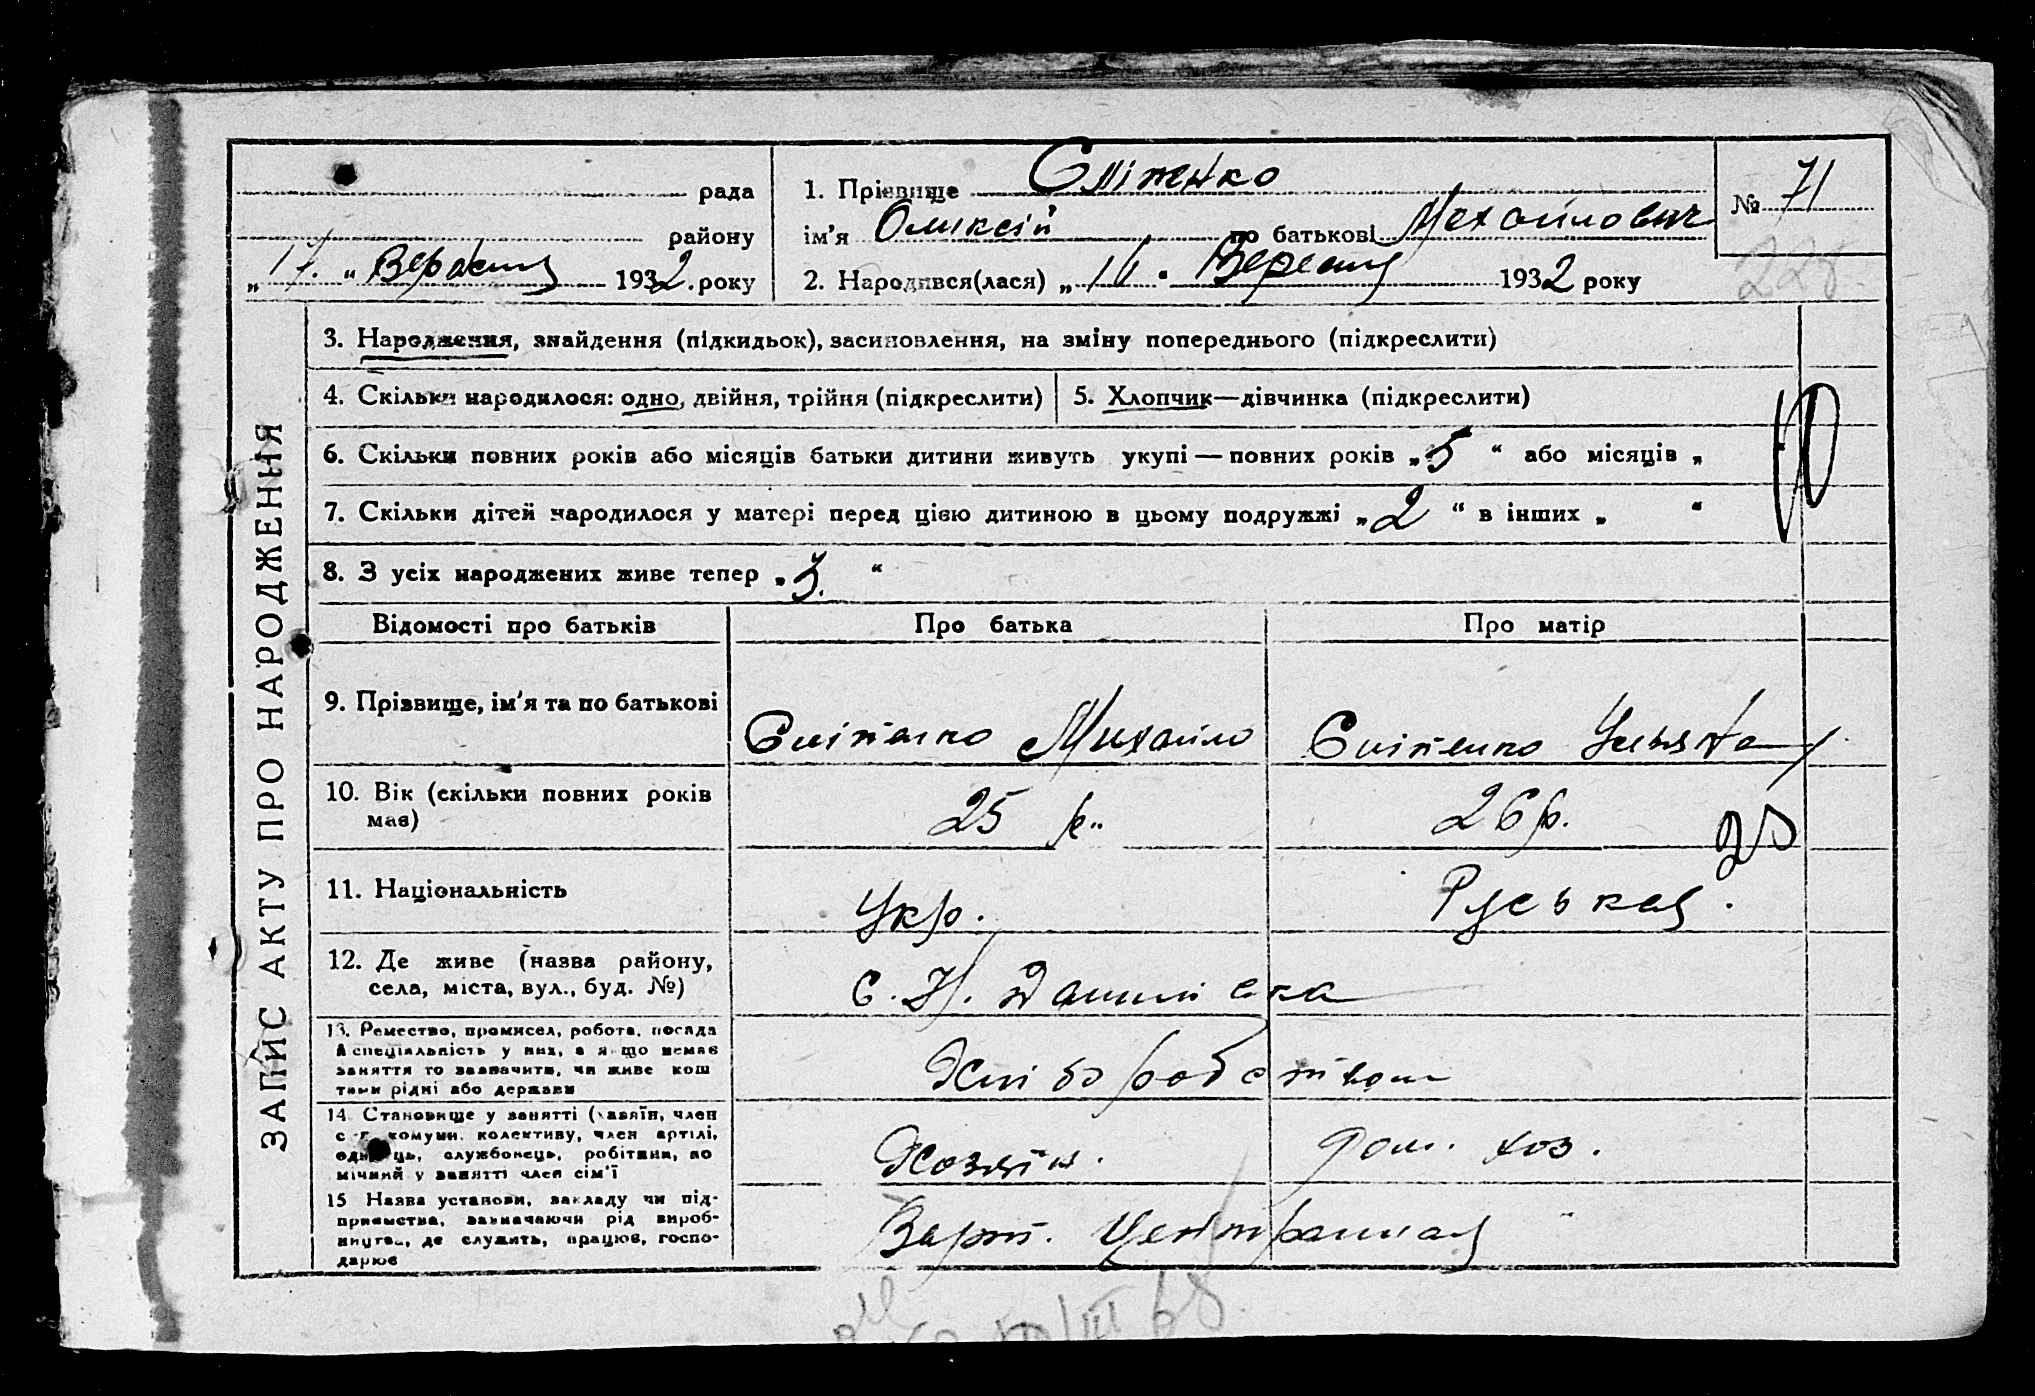 рада
району
„17." Вересня 1932. року
1. Прізвище Сліпенко
ім'я Оликсій по батькові Михайлович
№ 71
2. Народився(лася) „16" Вересня 1932 року
228.
ЗАПИС АКТУ ПРО НАРОДЖЕННЯ
3. Народження, знайдення (підкидьок), засиновлення, на зміну попереднього (підкреслити)
4. Скільки народилося: одно, двійня, трійня (підкреслити)
5. Хлопчик—дівчинка (підкреслити)
6. Скільки повних років або місяців батьки дитини живуть укупі — повних років „5" або місяців „
7. Скільки дітей народилося у матері перед цією дитиною в цьому подружжі „2" в інших „ "
8. З усіх народжених живе тепер „3. "
Відомості про батьків
Про батька
Про матір
9. Прізвище, ім'я та по батькові
Сліпенко Михайло
Сліпенко Ульяна
10. Вік (скільки повних років
має)
25 р.
26 р.
11. Національність
Укр.
Руськая.
12. Де живе (назва району,
села, міста, вул., буд. №)
с. Н. Данилівка
13. Ремество, промисел, робота, посада
й спеціальність у них, а якщо немає
заняття то зазначити, чи живе кош
тами рідні або держави
Хліборобством
14. Становище у занятті (хазяїн, член
с.-г. комуни, колективу, член артілі,
одинець, службовець, робітник, по
мічний у занятті член сім'ї
Хозяїн.
Дом. хоз.
15 Назва установи, закладу чи під-
приємства, зазначаючи рід вироб-
ництва, де служить, працює, госпо-
дарює
Централная